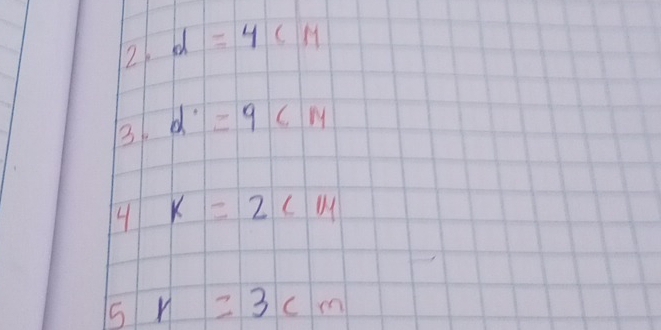 2. d = 4 cm
3. d = 9 cm
4 r = 2 cm
5 r = 3 cm